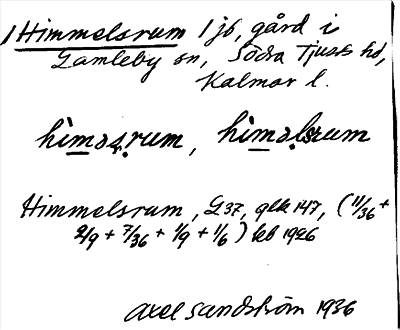 1 Himmelsrum 1 jb, gård i
Gamleby sn, Södra Tjusts hd,
Kalmar l.
hìməs̩rum, hìməl̥srum
Himmelsrum, G37, glk 147, (11/36 +
2/9 + 7/36 + 1/9 + 1/6) kb 1926
Axel Sandström 1936